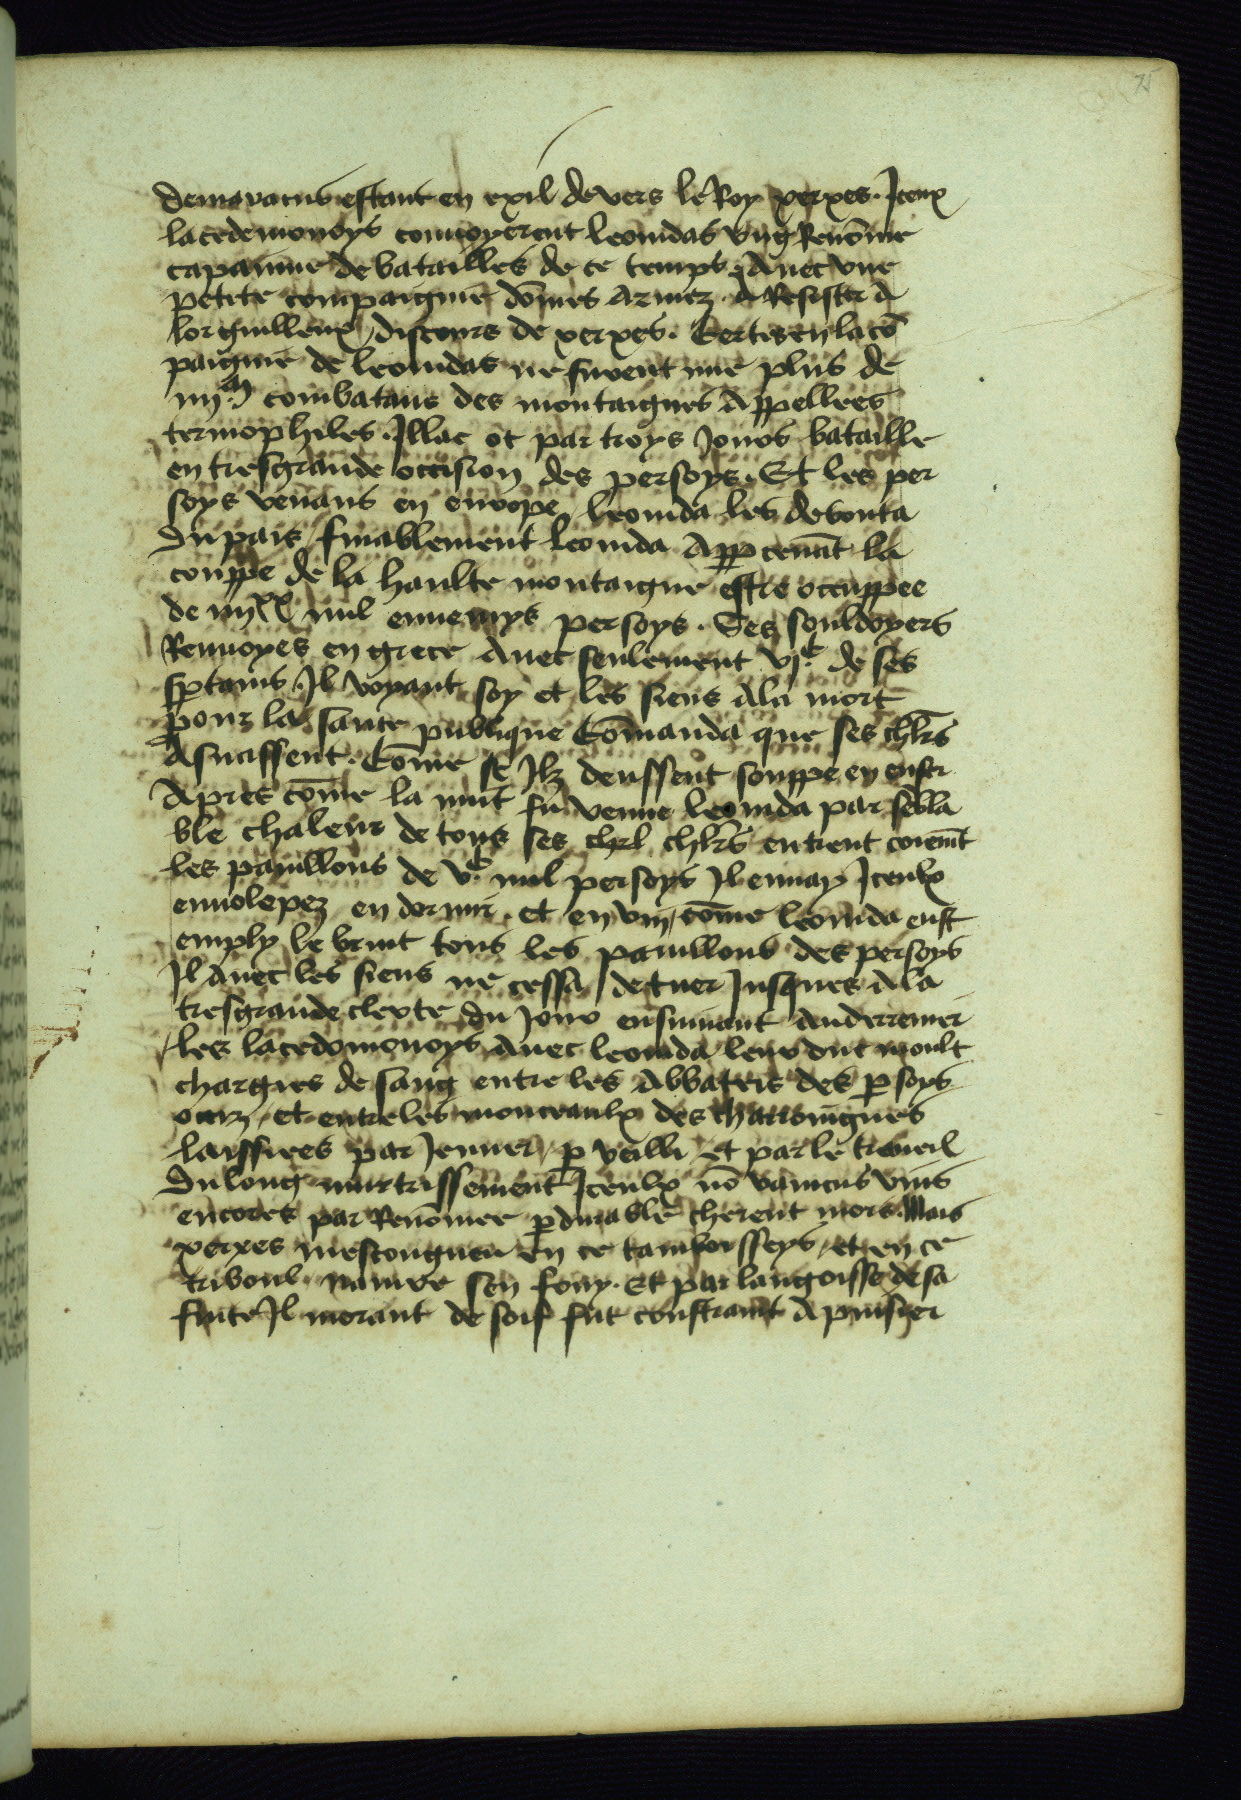 75
demaratus estant en exil devers le Roy xerxes. Iceux
lacedemonoys convoyerent leonidas ung Renōme
capitaine de batailles de ce temps Avec une
petite compaignie dōmes Armez A Resister A
lorguilleux discours de xerxes. Certes en la cō
paignie de leonidas ne furent mie plus de
iiij.m combatans des montaignes Appellees
termophiles. Illac ot par troys Jours bataille
en tresgrande occision des persoys. Et les per
soys venans en europe leonida les debouta
du pais finablement leonida App cevāt la
couppe de la haulte montaigne estre occuppee
de iiijxx mil ennemys persoys. Ses souldoyers
Renvoyes en grece Avec seulement vjc. de ses
sptains. Il voyant soy et les siens Ala mort
pour la sante publique Cōmanda que ses chlrs
Asmassent. Cōme se Ilz deussent souppe en enfer
Apres cōme la nuit fu venue leonida par sebla
ble chaleur de tous ses chrl chlrs entrent
les pauillons de vc. mil persoys Il envay Iceulx
envolepez en dormir. et en vin, cōme leonida eust
emply le bruit tous les pauillons des persoys
Il Avec les siens ne cessa de tuer Jusques Ala
tresgrande clerte du Jour ensuivant Auderrenier
les lacedomonoys Avec leonida leur duc moult
chargies de sang entre les Abbateis des p soys
occiz, et entre les monceaulx des charoingnes
laissiees par Jenner, p veilli et par le traveil
du long murtrissement Iceulx nō vaincus vnis
encores par Renōmee pdurable cherent mors. Mais
xerxes mescongneu en ce tamboisseys, et en ce
triboul navre sen fouy. Et par langoisse de sa
fuite Il morant de soif fut constraint A puisier